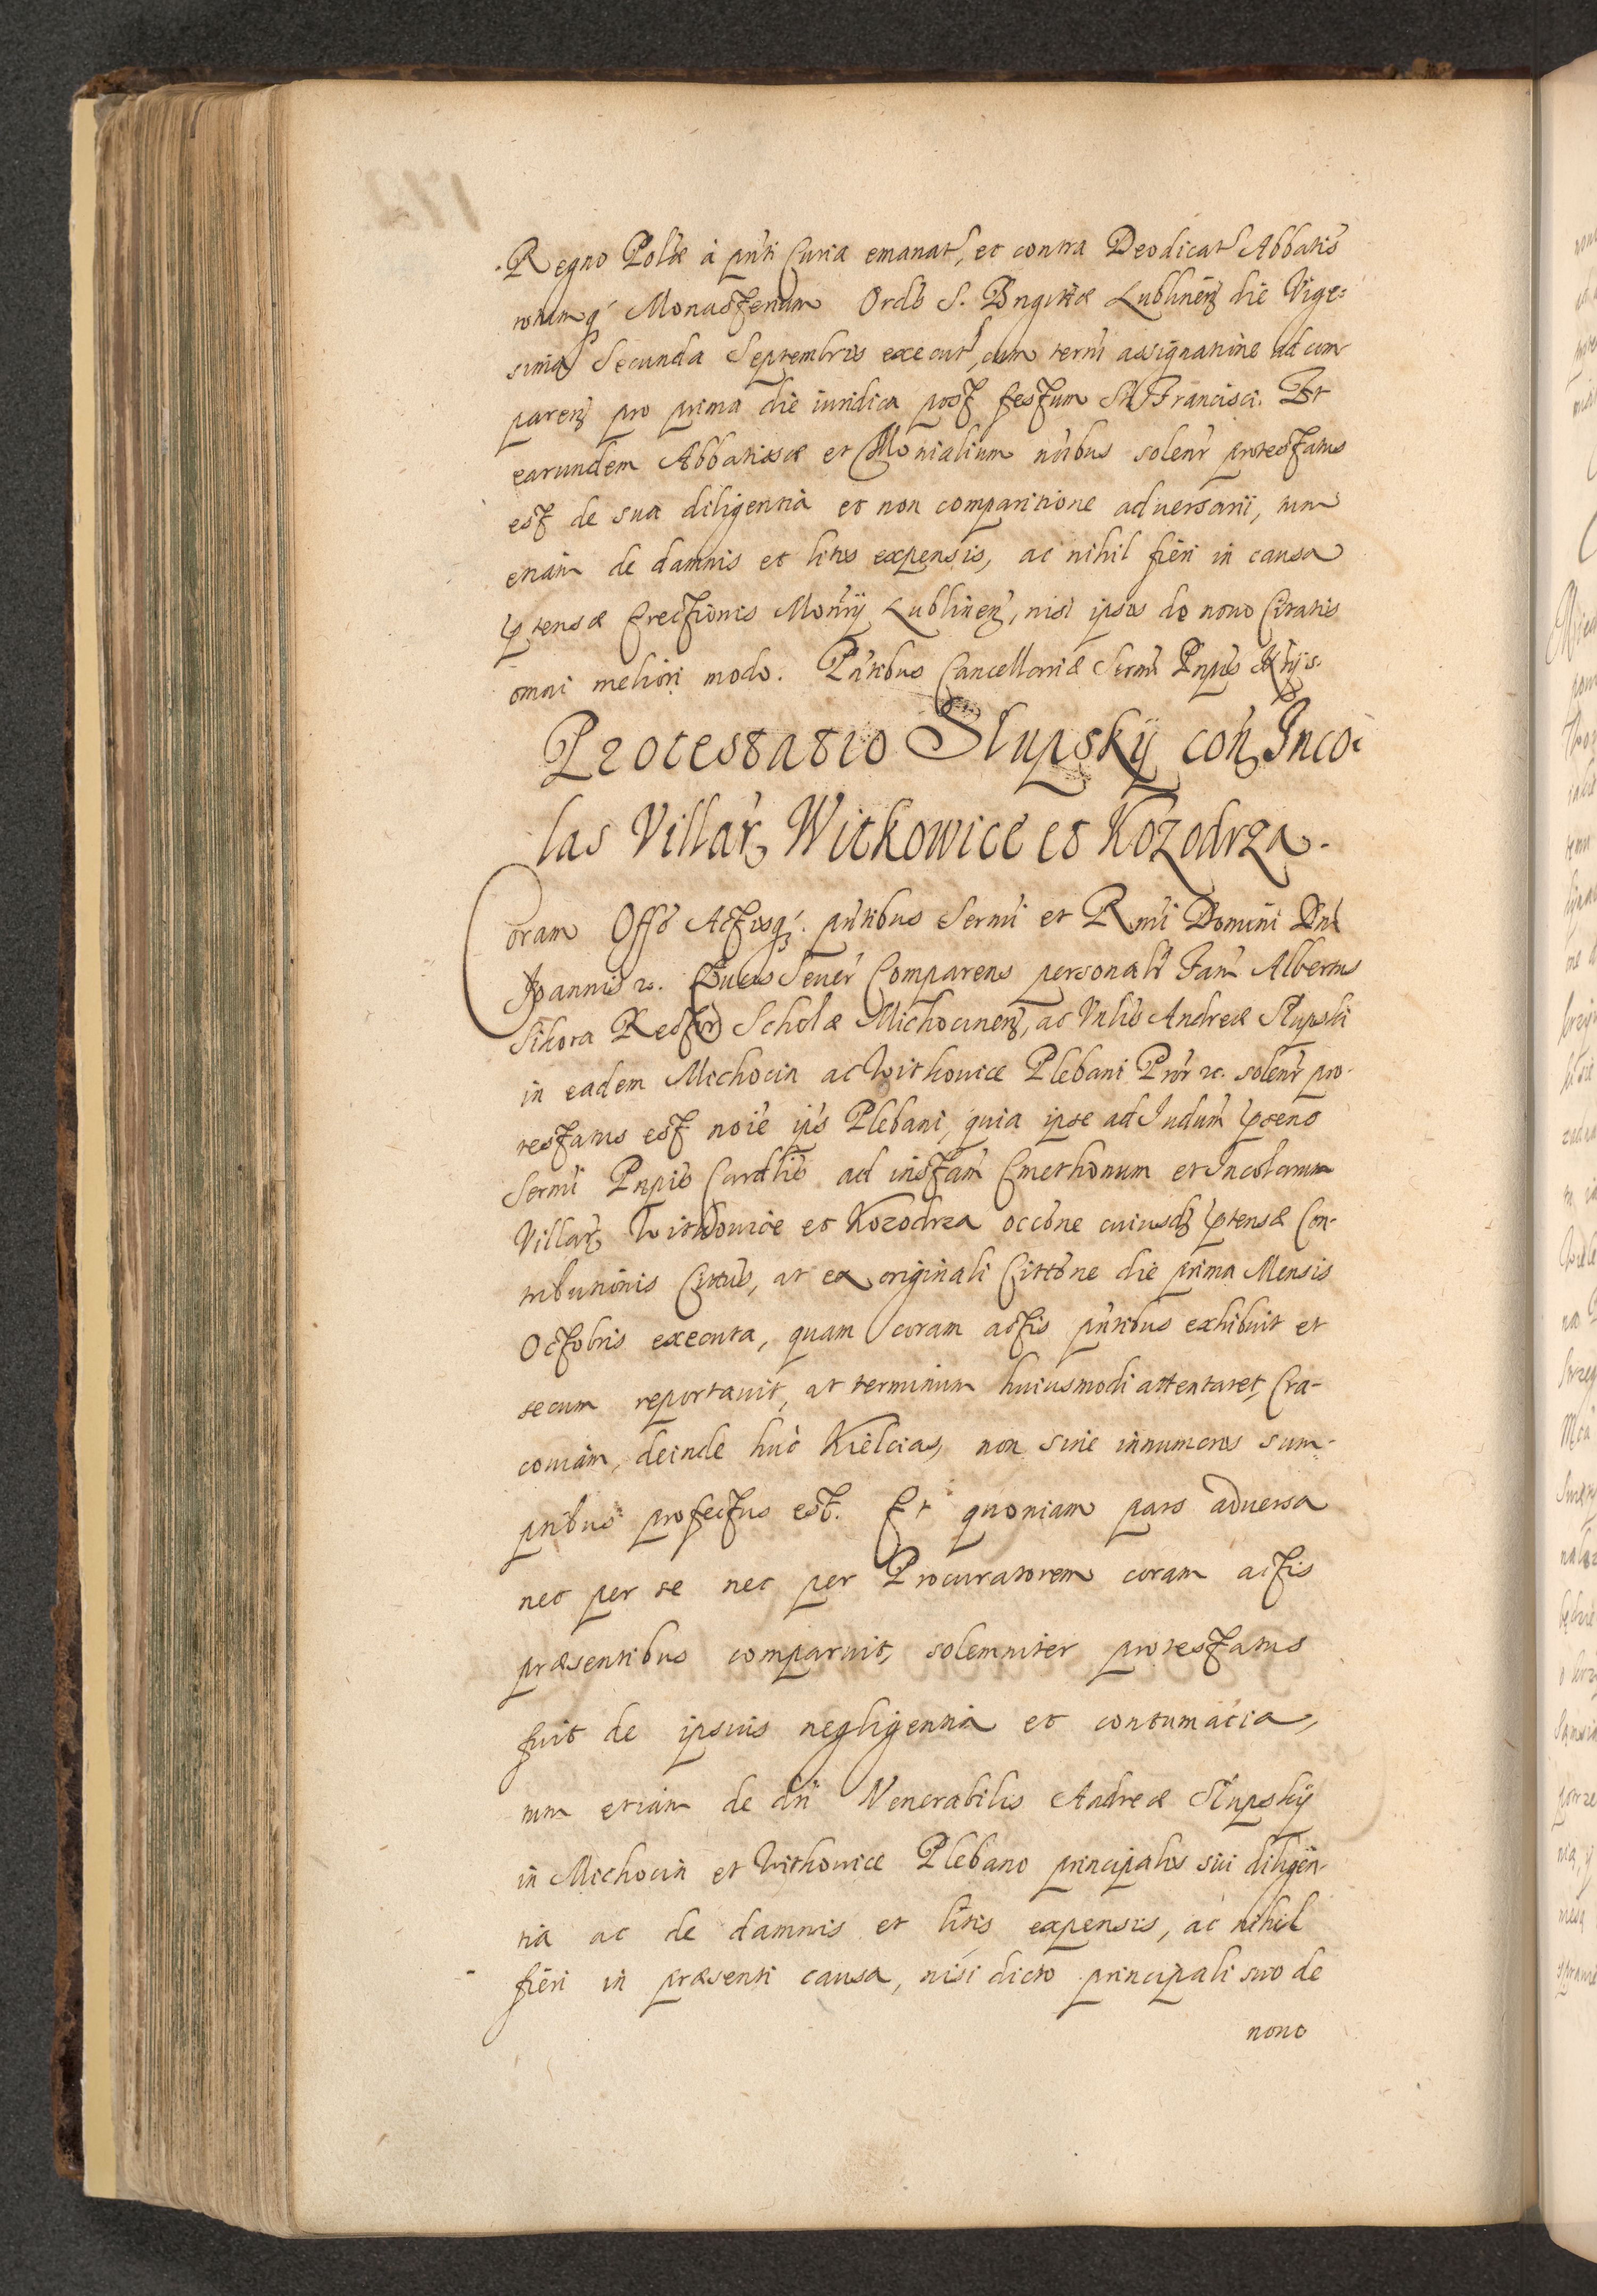 Regno Polӕ à pñti Curia emanat, et contra Deodicat Abbatis
totumq́ Monasterium Ordis S. Brigittæ Lublineñ die Vige-
sima Secunda Septembris execut, cum termi assignatione ad com
pareñ pro prima die iuridica post festum Sti Francisci. Et
earundem Abbatissæ et Monialium nŏibus soleñr protestatus
est de sua diligentia et non comparitione adversarii, tum
etiam de damnis et litis expensis, ac nihil fieri in causa
prtensæ Erectionis Moñrij Lublineñ, nisi ipsis de nouo Citatis
omni meliori modo. Pñtibus Cancellariæ Sermi Pnpis
Protestatio Slupskij coñ Inco-
las Villar Witkowice et Kozodrza.
Coram Offo Actisq́. pñtibus Sermi et Rmi Domini Dni
Joannis &c. Ducis Seuer Comparens personalr Fam Albertus
Sikora Rector Scholæ Michocineñ, ac Vnlis Andreæ Slupski
in eadem Michocin ac Witkowice Plebani Prŏr &c. soleñr pro-
testatus est noie ips Plebani, quia ipse ad Iudum prtens
Sermi Pnpis Cardlis ad instam Cmethonum et Incolarum
Villar Witkowice et Kozodrza occŏne cuiusd prtensæ Con-
tributionis Cittus, ut ex originali Cittŏne die prima Mensis
Octobris executa, quam coram actis pñtibus exhibuit et
secum reportauit, ut terminum huiusmodi attentaret, Cra-
couiam, deinde huc Kielcias, non sine innumeris sum-
ptibus profectus est. Et quoniam pars aduersa
nec per se nec per Procuratorem coram actis
præsentibus comparuit, solemniter protestatus
fuit de ipsius negligentia et contumacia,
tum etiam de dti Venerabilis Andreæ Slupskij
in Michocin et Witkowice Plebano principalis sui diligen-
tia ac de damnis et litis expensis, ac nihil
fieri in præsenti causa, nisi dicto principali suo de
nouo